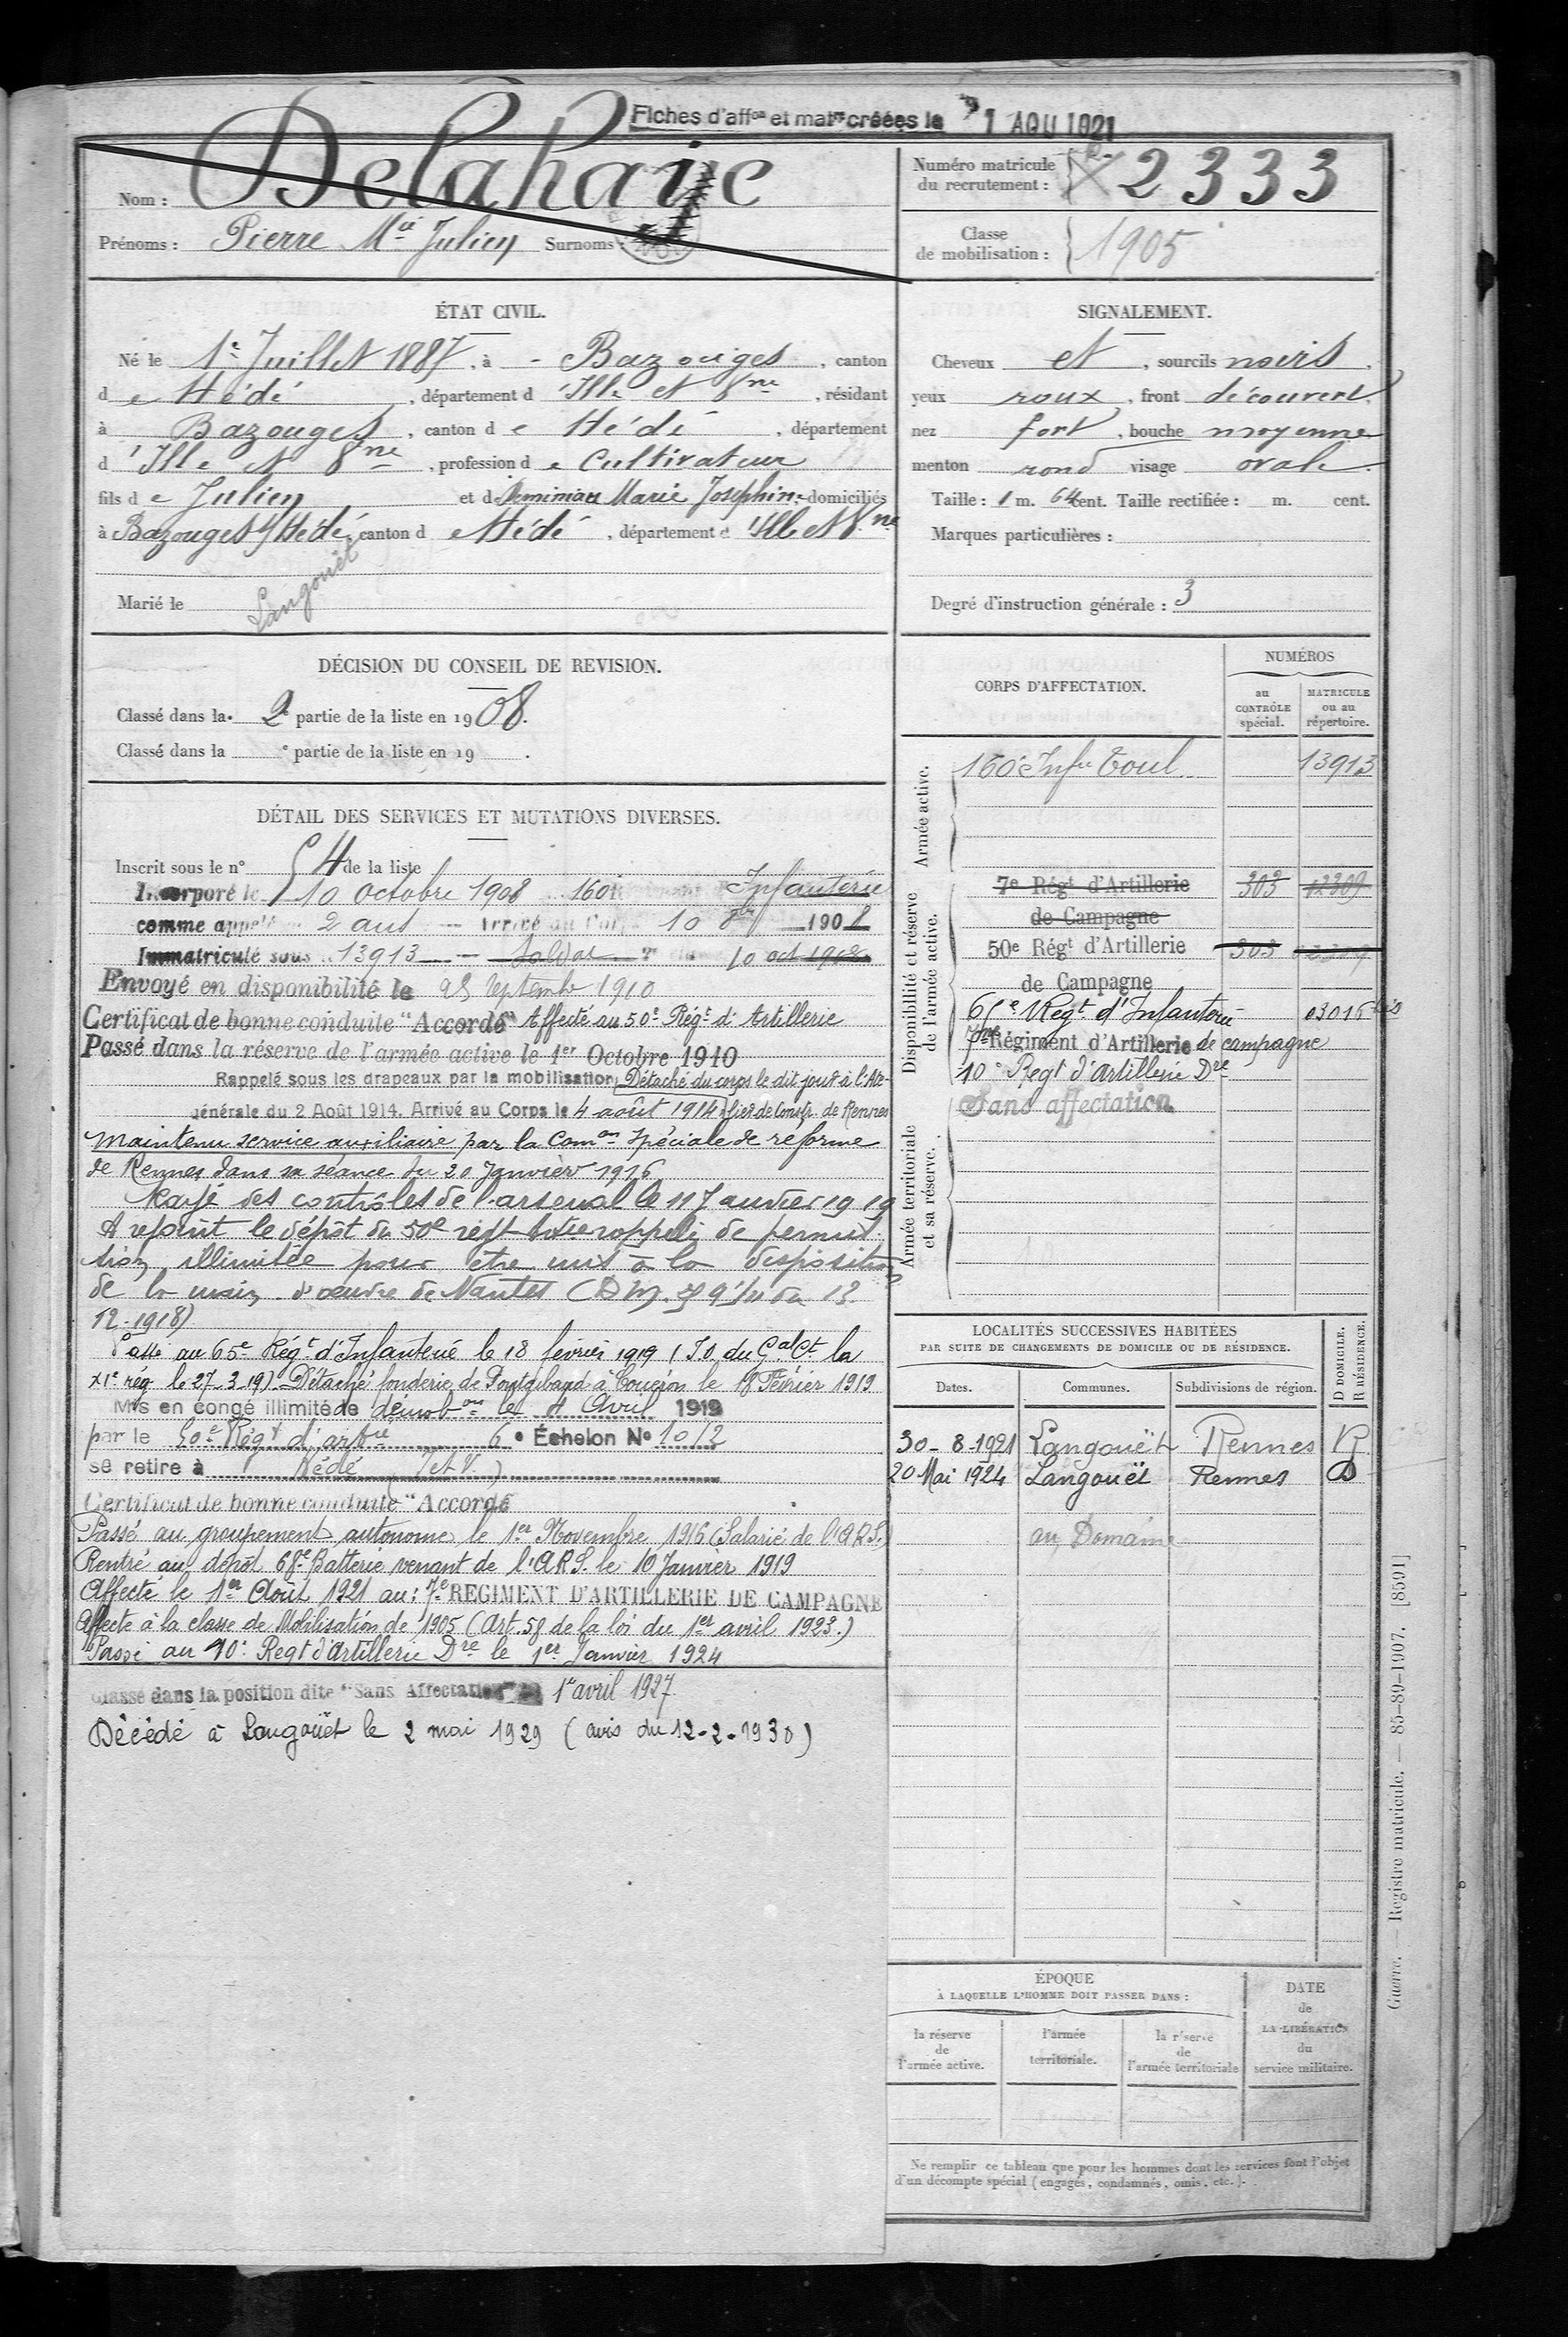 Fiches d'affon et matres créées le 1 AOU 1921
Nom : Delahaije
Prénoms : Pierre Mie Julien Surnoms :
Numéro matricule du recrutement : 2333
Classe de mobilisation : 1905
ÉTAT CIVIL.
Né le 1er Juillet 1887, à - Bazouges, canton
de Hédé, département d'Ille et Vne, résidant
à Bazouges, canton de Hédé, département
d'Ille et Vne, profession de Cultivateur
fils de Julien et de Marie Josephine domiciliés
à Bazouges s/ Hédé, canton de Hédé, département d'Ille et Vne
Langouët
Marié le
SIGNALEMENT.
Cheveux et, sourcils noirs.
yeux roux, front découvert,
nez fort, bouche moyenne
menton rond visage ovale.
Taille : 1 m. 64 cent. Taille rectifiée : m. cent.
Marques particulières :
Degré d'instruction générale : 3
DÉCISION DU CONSEIL DE REVISION.
Classé dans la 2e partie de la liste en 1908.
Classé dans la e partie de la liste en 19 .
DÉTAIL DES SERVICES ET MUTATIONS DIVERSES.
Inscrit sous le n° 54 de la liste
Incorporé le 10 octobre 1908 160e Infanterie
comme appelé 2 ans Arrivé au Corps 10 8bre 1908
Immatriculé sous 13913 Soldat 10 oct 1908
Envoyé en disponibilité le 25 Septembre 1910
Certificat de bonne conduite "Accordé" Affecté au 50e Régt d'Artillerie
Passé dans la réserve de l'armée active le 1er Octobre 1910
Rappelé sous les drapeaux par la mobilisation Détaché du corps le dit jour à l'Ate-
générale du 2 Août 1914. Arrivé au Corps le 4 août 1914 lier de Constr. de Rennes
Maintenu service auxiliaire par la Comon spéciale de réforme
de Rennes dans sa séance du 20 Janvier 1916
Rayé des contrôles de l'arsenal le 11 Janvier 1919
A rejoint le dépôt du 50e régt rappelé de permis-
sion illimitée pour être mis à la disposition
de la main d'œuvre de Nantes (DM. du 13
12-1918)
Passé au 65e Régt d'Infanterie le 18 février 1919 (I.O. du Gal Ct la
XIe rég. le 27-3-19). Détaché fonderie de Pontgibaud à Couëron le 18 Février 1919
Mis en congé illimité de démobon le 4 Avril 1919
par le 50e Régt d'artie 6e Échelon N° 1012
se retire à Hédé (I et V.)
Certificat de bonne conduite "Accordé
Passé au groupement autonome le 1er Novembre 1916 (Salarié de l'A.R.S.)
Rentré au dépôt 68e Batterie venant de l'A.R.S. le 10 Janvier 1919
Affecté le 1er Août 1921 au : 7e REGIMENT D'ARTILLERIE DE CAMPAGNE
Affecté à la classe de Mobilisation de 1905 (Art. 58 de la loi du 1er avril 1923.)
Passé au 10e Regt d'Artillerie Dre le 1er Janvier 1924
Classé dans la position dite "Sans Affectation" 1er avril 1927
Décédé à Langouët le 2 mai 1929 (avis du 12-2-1930)
CORPS D'AFFECTATION.
NUMÉROS
au CONTRÔLE spécial.
MATRICULE ou au répertoire.
Armée active.
160e Infie Toul 13913
Disponibilité et réserve de l'armée active.
7e Régt d'Artillerie 303 12309
de Campagne
50e Régt d'Artillerie 303
de Campagne
65e Régt d'Infanterie 03016 bis
7me Régiment d'Artillerie de campagne
10e Regt d'Artillerie Dre
Sans affectation
Armée territoriale et sa réserve.
LOCALITÉS SUCCESSIVES HABITÉES
PAR SUITE DE CHANGEMENTS DE DOMICILE OU DE RÉSIDENCE.
Dates. Communes. Subdivisions de région. D DOMICILE. R RÉSIDENCE.
30-8-1921 Langouët Rennes R
20 Mai 1924 Langouët Rennes D
au Domaine
ÉPOQUE
À LAQUELLE L'HOMME DOIT PASSER DANS :
la réserve de l'armée active.
l'armée territoriale.
la réserve de l'armée territoriale
DATE de LA LIBÉRATION du service militaire.
Ne remplir ce tableau que pour les hommes dont les services font l'objet
d'un décompte spécial (engagés, condamnés, omis, etc.).
Guerre. — Registre matricule. — 85-89-1907. [8591]